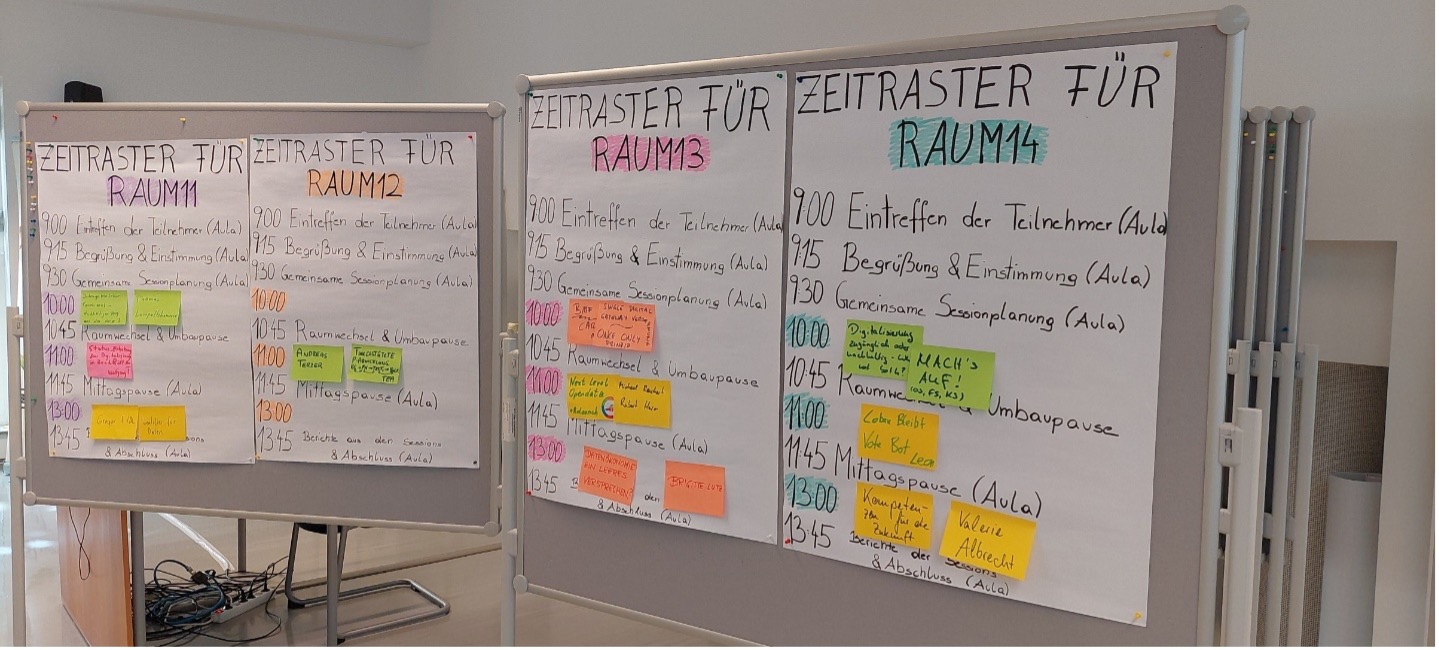 ZEITRASTER FÜR
RAUM11
9:00 Eintreffen der Teilnehmer (Aula)
9:15 Begrüßung & Einstimmung (Aula)
9:30 Gemeinsame Sessionplanung (Aula)
10:00
10:45 Raumwechsel & Umbaupause
11:00
11:45 Mittagspause (Aula)
13:00
13:45
& Abschluss (Aula)
ZEITRASTER FÜR
RAUM12
9:00 Eintreffen der Teilnehmer (Aula)
9:15 Begrüßung & Einstimmung (Aula)
9:30 Gemeinsame Sessionplanung (Aula)
10:00
10:45 Raumwechsel & Umbaupause
11:00
ANDREAS
11:45 Mittagspause (Aula)
13:00
13:45 Berichte aus den Sessions
& Abschluss (Aula)
ZEITRASTER FÜR
RAUM13
9:00 Eintreffen der Teilnehmer (Aula)
9:15 Begrüßung & Einstimmung (Aula)
9:30 Gemeinsame Sessionplanung (Aula)
10:00
ONLY
10:45 Raumwechsel & Umbaupause
11:00
Next Level
Opendata
11:45 Mittagspause (Aula)
13:00
DATENÖKONOMIE
EIN LEERES
VERSPRECHEN?
BRIGITTE LUTZ
13:45 den
& Abschluss (Aula)
ZEITRASTER FÜR
RAUM14
9:00 Eintreffen der Teilnehmer (Aula)
9:15 Begrüßung & Einstimmung (Aula)
9:30 Gemeinsame Sessionplanung (Aula)
10:00
Digitalisierung
zugänglich oder
nachhaltig
MACH'S
AUF!
10:45 Raumwechsel & Umbaupause
11:00
Bleibt
Vote Bot Leon
11:45 Mittagspause (Aula)
13:00
Kompeten-
zen für die
Zukunft
Valerie
Albrecht
13:45 Berichte der Sessions
& Abschluss (Aula)